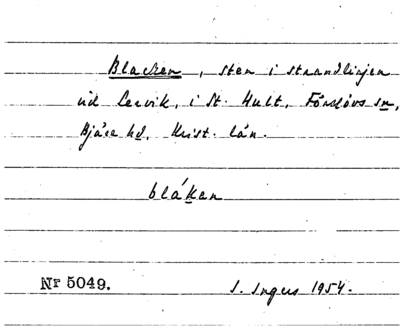 Blacken, sten i strandlinjen
vid Lervik, i St. Hult, Förslövs sn,
Bjäre hd. Krist. län.
blákan
Nr 5049.
I. Ingers 1954.